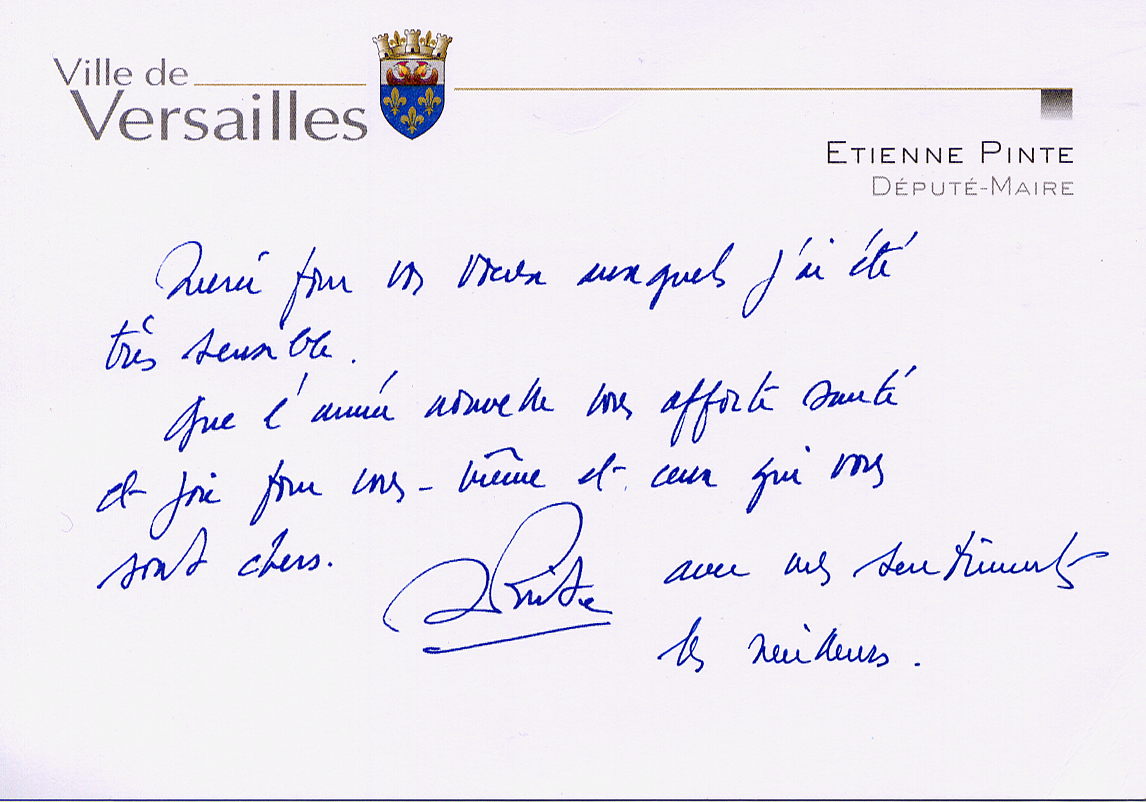 Ville de
Versailles
ETIENNE PINTE
DÉPUTÉ-MAIRE
Merci pour vos vœux auxquels j'ai été
très sensible.
Que l'année nouvelle vous apporte santé
et joie pour vous-même et ceux qui vous
sont chers.
EPinte
avec mes sentiments
les meilleurs.